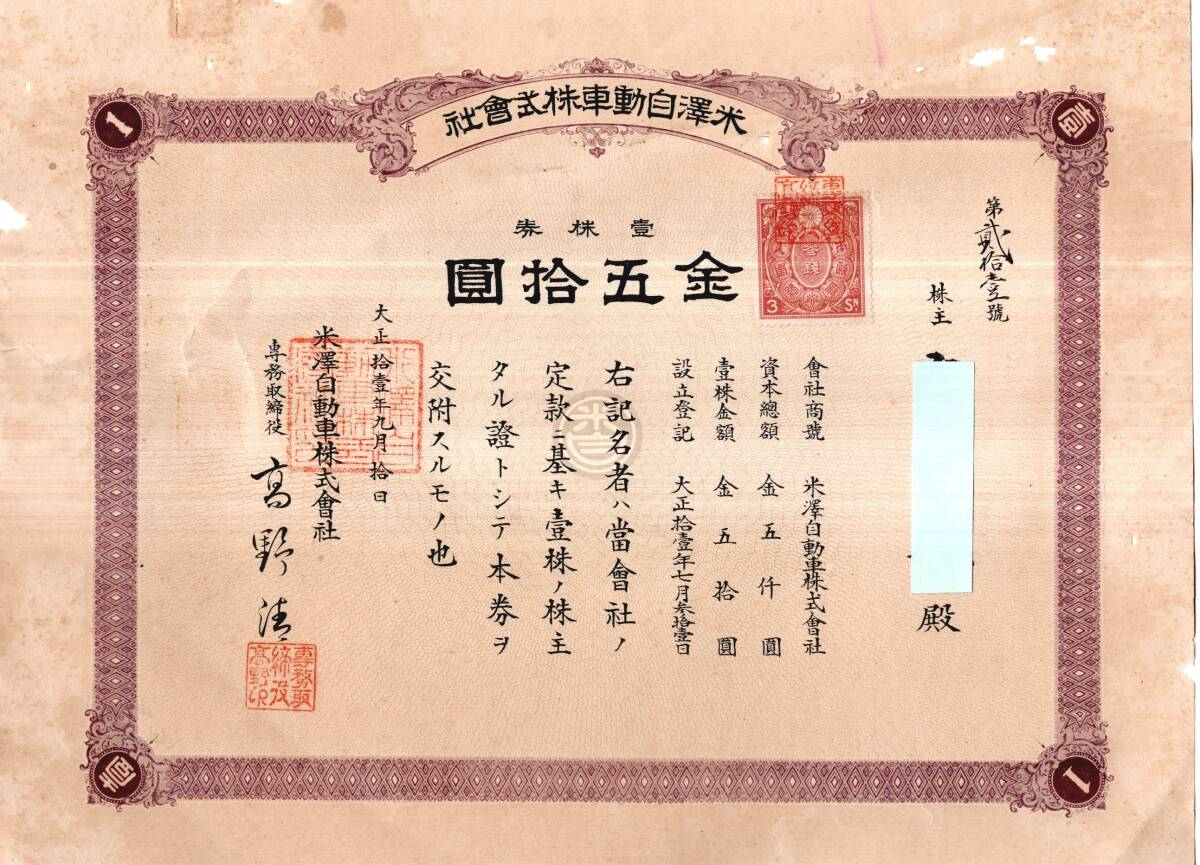 米澤自動車株式會社
壹株券
金五拾圓
第貳拾壹號
株主
殿
會社商號 米澤自動車株式會社
資本總額 金五仟圓
壹株金額 金五拾圓
設立登記 大正拾壹年七月參拾壹日
右記名者ハ當會社ノ
定款ニ基キ壹株ノ株主
タル證トシテ本券ヲ
交附スルモノ也
大正拾壹年九月拾日
米澤自動車株式會社
專務取締役 高野清
專務取
締役
高野印
3 SN
1
壹
壹
1